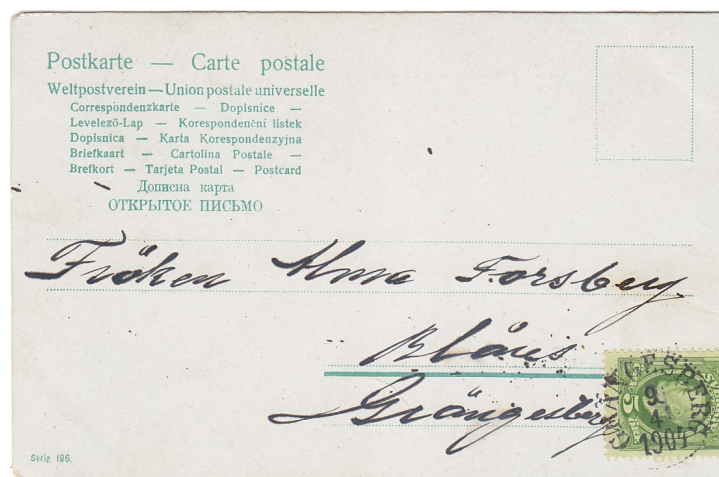 Postkarte — Carte postale
Weltpostverein — Union postale universelle
Correspondenzkarte — Dopisnice —
Levelező-Lap — Korespondenční listek
Dopisnica — Karta Korespondenzyjna
Briefkaart — Cartolina Postale —
Brefkort — Tarjeta Postal — Postcard
Дописна карта
ОТКРЫТОЕ ПИСЬМО
Fröken Alma Forsberg
Grängesberg
GRÄNGESBERG
9
4
1904
5
Serie 196.